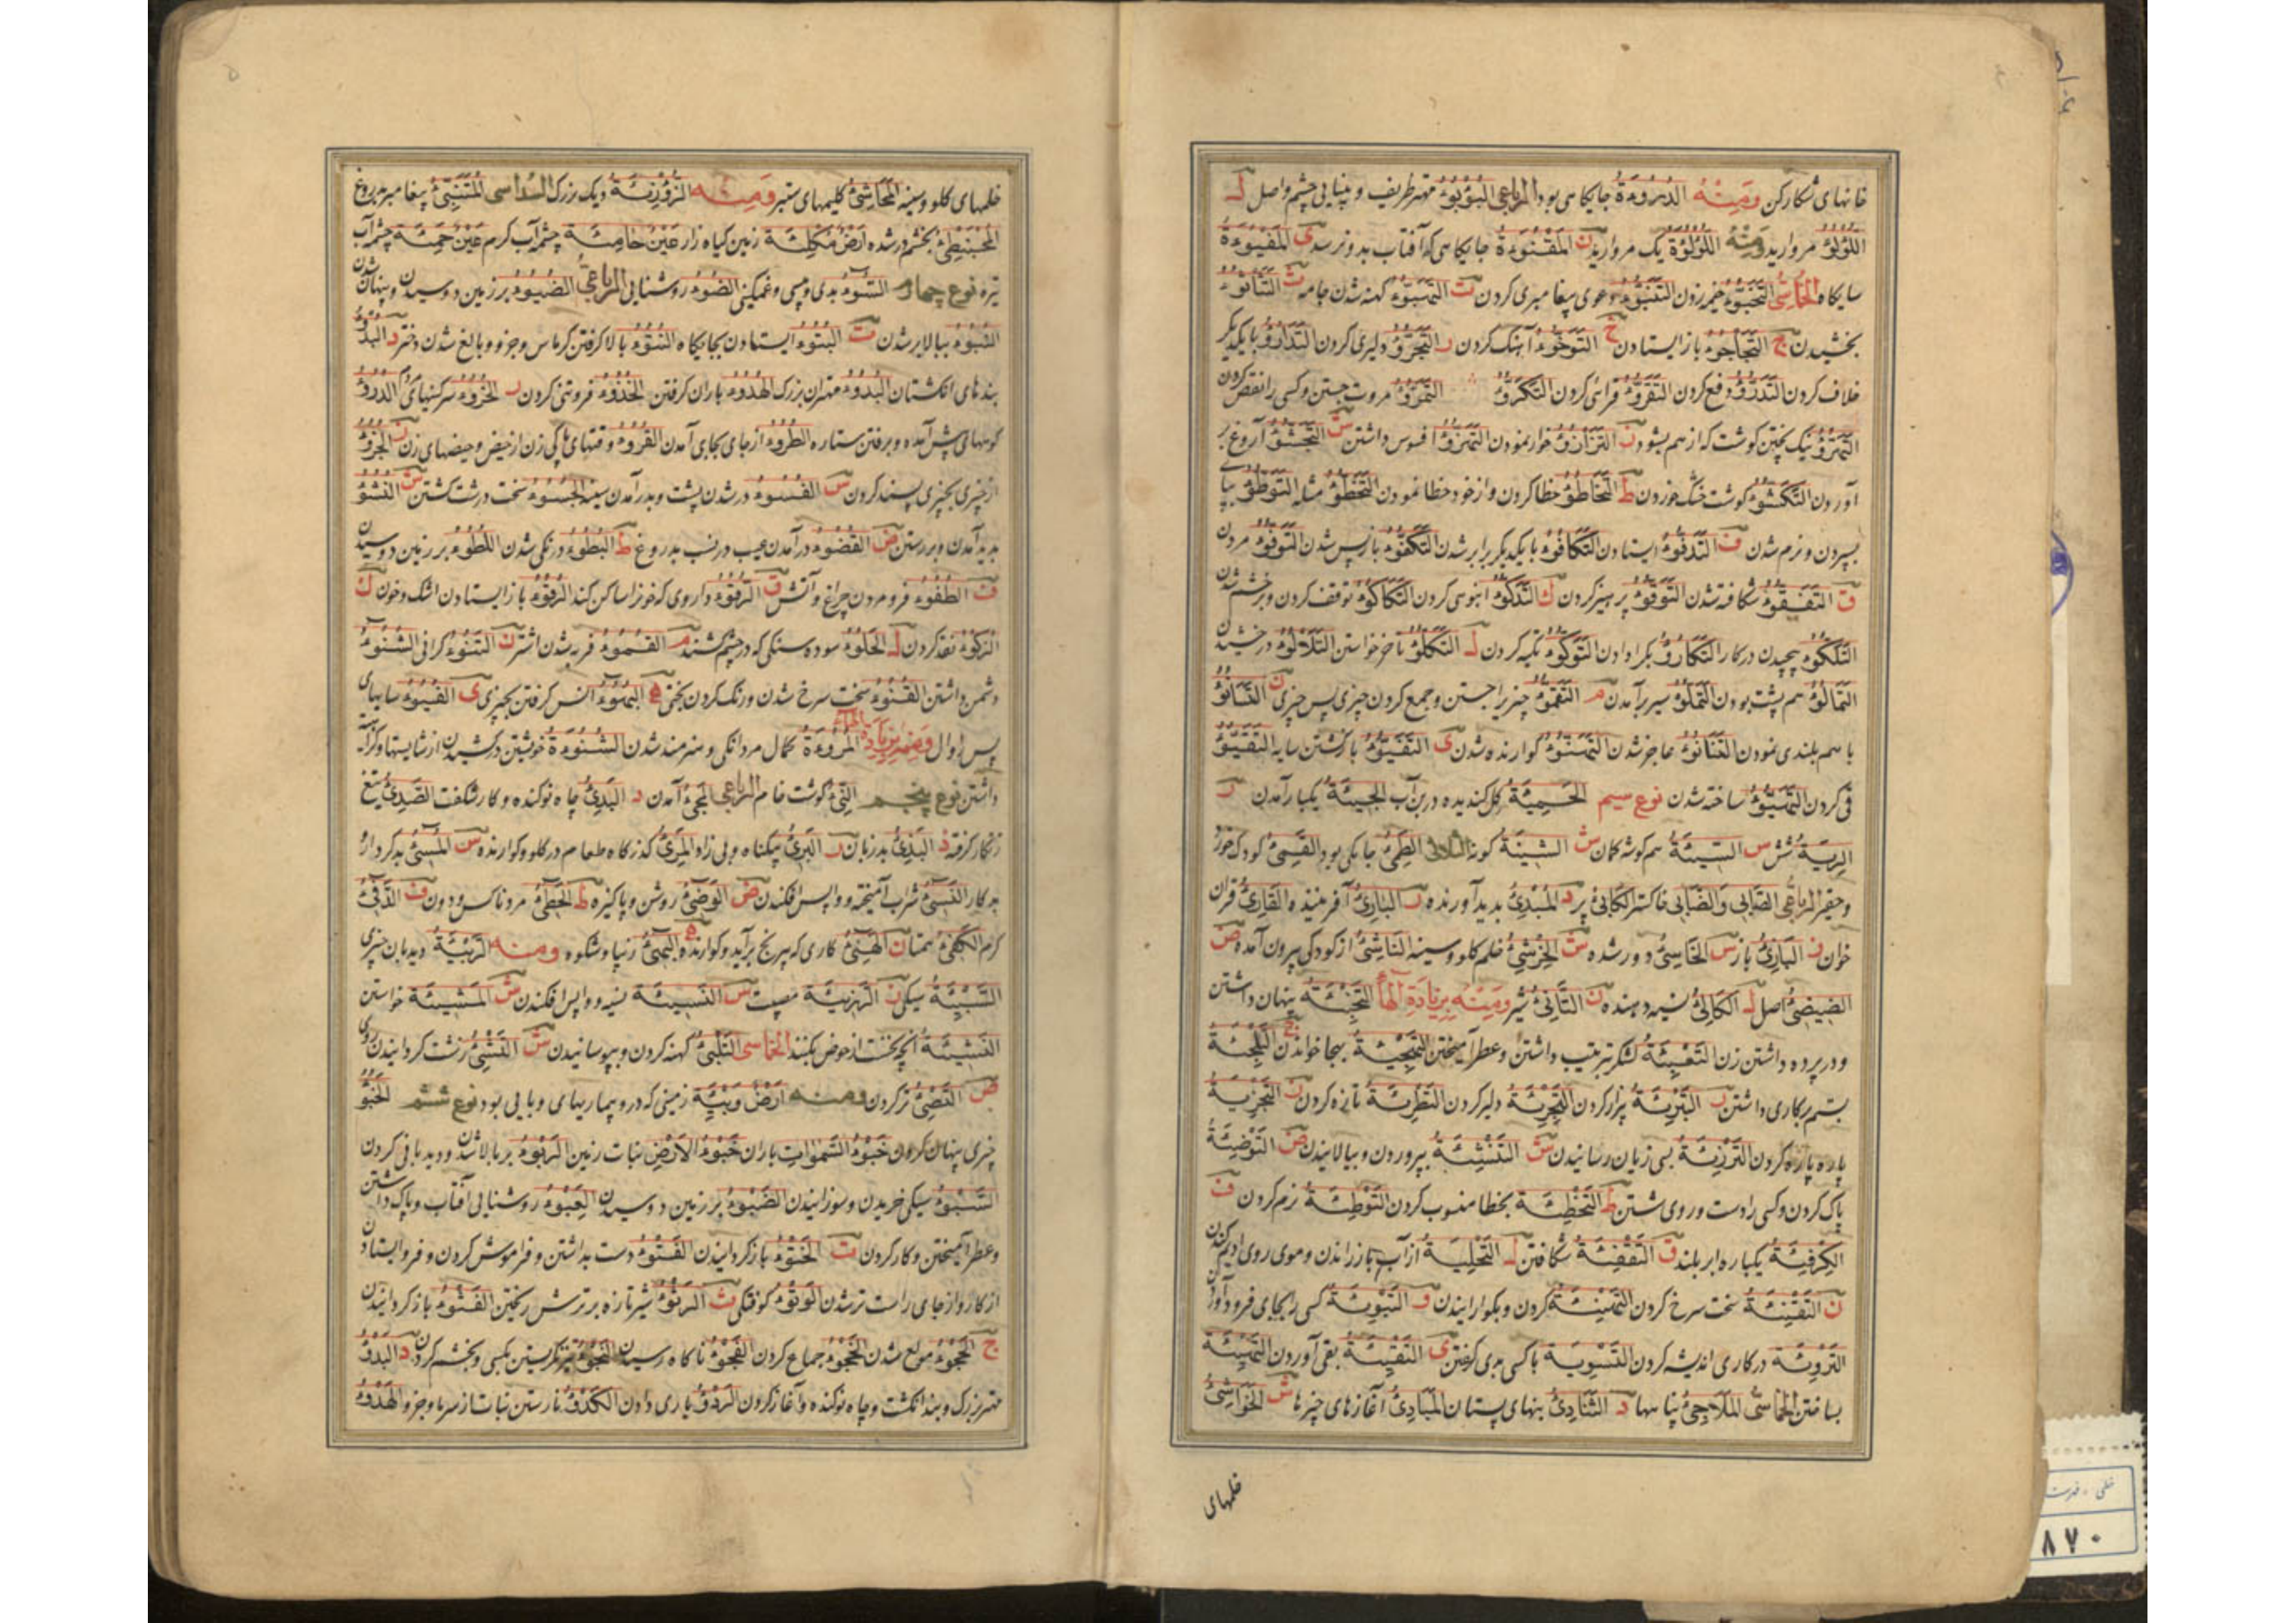 خانهای شکارکن ومنه الدروءة جایکاهی بود الرباعی البؤبؤ مهتر ظریف و بینایی چشم و اصل ل
اللؤلؤ مروارید ومنه اللؤلؤة یک مروارید ن المقنوءة جایکاهی که آفتاب بدو نرسد ی المفیوءة
سایکاه الخماسی التخبؤ خیمه زدن التنبؤ دعوی پیغامبری کردن ت التهتؤ کهنه شدن جامه ث التثاثؤ
بخشیدن ج التجاجؤ باز ایستادن خ التوخؤ آهنک کردن ر التجرؤ دلیری کردن التدارؤ با یکدیکر
خلاف کردن التدرؤ دفع کردن التقرؤ قرائی کردن التکرؤ التمرؤ مروت جستن و کسی را نقص کردن
التهرؤ نیک پختن کوشت که از هم بشود ز التزازؤ خوار نمودن التهزؤ افسوس داشتن ش التجشؤ آروغ بر
آوردن التکشؤ کوشت خشک خوردن ط التخاطؤ خطا کردن و از خود خطا نمودن التخطؤ مثله التوطؤ بپا
بسپردن و نرم شدن ف التدفؤ ایستادن التکافؤ با یکدیکر برابر شدن التکفؤ باز پس شدن التوفؤ مردن
ق التفقؤ شکافته شدن التوقؤ پرهیز کردن ک التدکؤ انبوهی کردن التکاکؤ توقف کردن و برخشم شدن
التلکؤ پیچیدن در کار التکارؤ بکرا دادن التوکؤ تکیه کردن ل التکلؤ تاخر خواستن التلألؤ درخشیدن
التمالؤ هم پشت بودن التملؤ سیر برآمدن م التقمؤ چیز برا جستن و جمع کردن چیزی پس چیزی ن التثانؤ
با هم بلندی نمودن التفانؤ عاجز شدن التهنؤ کوارنده شدن ی التفیؤ بازکشتن سایه التقیؤ
قی کردن التهیؤ ساخته شدن نوع سیم الحمیئة کل کندیده در بن آب الجیئة یکبار آمدن ر
الریة شش س السیئة هم کوشه کمان ش الشیئة کونه الثلاثی الطمئ جایکی بود القمئ کودک خورد
و حقیر الرباعی الضابی والضبابی خاکستر الکابئ پر د المبدئ بدید آورنده ر البارئ آفریننده القارئ قران
خوان ز البازئ باز س الخاسئ دور شده ش الخرشئ خلم کلو و سینه الناشئ از کودکی بیرون آمده ض
الضیضئ اصل ل الکالئ نسیه دهنده ن الثانئ شیر ومنه بزیادة الهاء التخبئة پنهان داشتن
و در پرده داشتن زن التعبئة لشکر بترتیب داشتن و عطر آمیختن التهجیئة بهجا خواندن ج التلجئة
بستم بر کاری داشتن ر التبرئة بیزار کردن التجرئة دلیر کردن التطرئة تازه کردن ز التجزیة
پاره پاره کردن الترزئة بسی زیان رسانیدن ش التنشئة بپروردن و ببالانیدن ض التوضئة
پاک کردن و کسی را دست و روی شستن ط التخطئة بخطا منسوب کردن التوطئة نرم کردن ف
الکرفئة یکباره ابر بلند ق التفقئة شکافتن ل التحلیة از آب باز راندن و موی روی ادیم کندن
ن التقنئة سخت سرخ کردن التهنئة کردن و بکوارانیدن و التبوئة کسی را بجای فرود آوردن
التروئة در کاری اندیشه کردن التسویة با کسی بدی کرفتن ی التقیئة بقی آوردن التهیئة
بساختن الخماسی الملاجئ پناهها د الثنادئ بنهای پستان المبادئ آغازهای چیزها ش الخراشئ
خلمهای
خلمهای کلو و سینه المحاشئ کلیمهای ستبر ومنه الزؤزئة دیک بزرک السداسی المتنبئ پیغامبر بدروغ
المحبنطئ بخشم در شده ارض مکلئة زمین کیاه زار عین حامئة چشمه آب کرم عین حمئة چشمه آب
تیره نوع چهارم السوء بدی و پیسی و غمکینی الضوء روشنایی الرباعی الضبوء بر زمین دوسیدن و پنهان شدن
القبوء ببالا بر شدن ت البتوء ایستادن بجایکاه النتوء بالا کرفتن کرماس و جز و و بالغ شدن دختر د البدؤ
بندهای انکشتان البدوء مهتران بزرک الهدوء باران کرفتن الخذوء فروتنی کردن ر الخروء سرکینهای الدروء
کوههای پیش آمده و بر رفتن ستاره الطروء از جای بجای آمدن القروء وقتهای پاکی زن از حیض و حیضهای زن ز الجزوء
از چیزی بچیزی بسنده کردن س الفسوء در شدن پشت و بدر آمدن سینه الجسوء سخت درشت کشتن ش النشؤ
بدید آمدن و بر رستن ض القضوء در آمدن عیب در نسب بدروغ ط البطوء درنکی شدن اللطوء بر زمین دوسیدن
ف الطفوء فرو مردن چراغ و آتش ق الرقوء داروی که خونرا ساکن کند الرقوء باز ایستادن اشک و خون ک
الزکوء نقد کردن ل الحلوء سوده سنکی که در چشم کشند م القموء فربه شدن اشتر ن التنوء کرانی الشنوء
دشمن داشتن القنوء سخت سرخ شدن و رنک کردن بحنی ه البهوء انس کرفتن بچیزی ی الفیوء سایهای
پس زوال ومنه بزیادة الهاء المروءة کمال مردانکی و هنرمند شدن الشنوءة خویشتن در کشیدن از شایستها و کراهت
داشتن نوع پنجم النیء کوشت خام الرباعی المجیء آمدن د البدیء چاه نو کنده و کار شکفت الصدیء تیغ
زنکار کرفته ذ البذیء بد زبان ر البریء بیکناه و بی زاد المریء کذرکاه طعام در کلو و کوارنده س المسیء بد کردار
بد کار النسیء شراب آمیخته و واپس افکندن ض الوضیء روشن و پاکیزه ط الخطیء مرد ناکس و دون ف الدفیء
کرم الکفیء همتا ن الهنیء کاری که بی رنج برآید و کوارنده ه البهیء زیبا و شکوه ومنه الربیئة دیدبان چیزی
السبیئة سیکی ز الرزیئة مصیبت س النسیئة نسیه و واپس افکندن ش المشیئة خواستن
النشیئة آنچه نخست از حوض بکنند الخماسی التلبئ کهنه کردن و بپوسانیدن ش التفشئ زشت کردانیدن روی
ض التضئ تر کردن ومنه ارض وبیئة زمینی که درو بیماریهای وبایی بود نوع ششم الخبؤ
چیزی پنهان کردن خبوء السموات باران خبوء الارض نبات زمین الربوء بر بالا شدن و دیدبانی کردن
السبوء سیکی خریدن و سوزانیدن الضبوء بر زمین دوسیدن العبوء روشنایی آفتاب و پاک داشتن
و عطر آمیختن و کار کردن ت الختوء باز کردانیدن الفتوء دست بداشتن و فراموش کردن و فرو ایستادن
از کار و از جای راست تر شدن الوثوء کوفتکی ث الرثوء شیر تازه بر ترش ریختن الفثوء باز کردانیدن
ج الحجوء مولع شدن الخجوء جماع کردن الفجوء ناکاه رسیدن النجوء تیز نکریستن بکسی و بخشم کردن د البدؤ
مهتر بزرک و بند انکشت و چاه نو کنده و آغاز کردن الردؤ یاری دادن الکدؤ نارستن نبات از سرما و جز و الهدؤ
۸۷۰